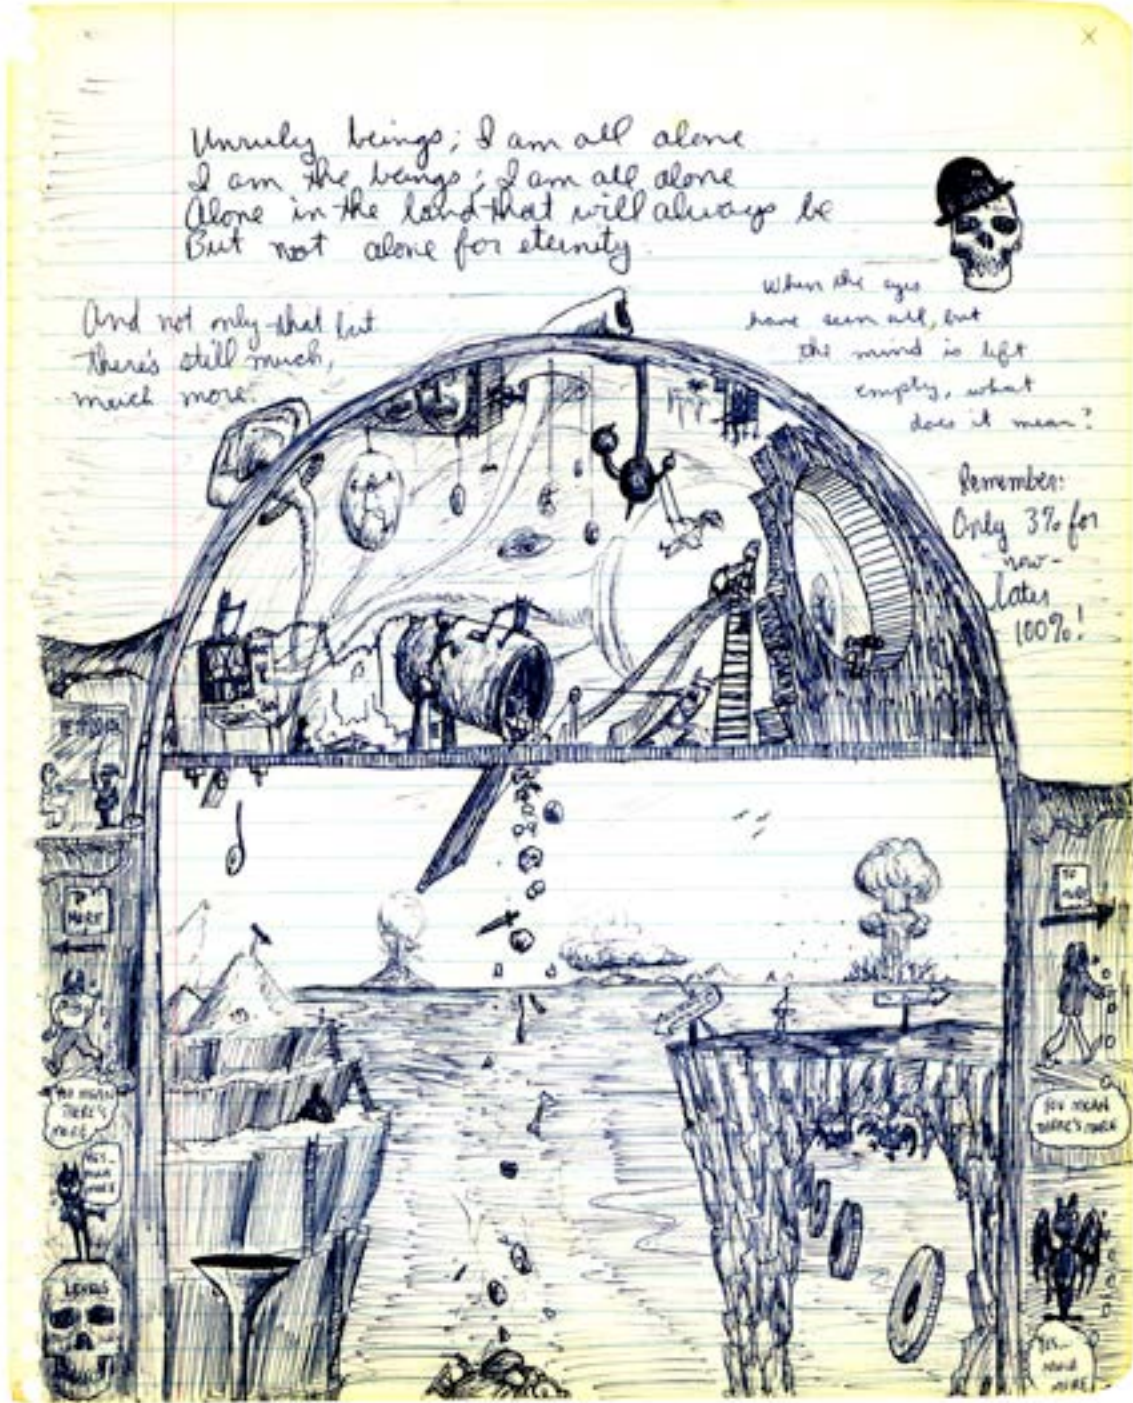 Unruly beings; I am all alone
I am the beings; I am all alone
Alone in the land that will always be
But not alone for eternity.
And not only that but
there's still much,
much more.
When the eyes
have seen all, but
the mind is left
empty, what
does it mean?
Remember:
Only 3% for
now-
later
100%!
TO
MORE
YOU MEAN
THERE'S
MORE
YES...
MUCH
MORE
LEVELS
TO
MORE
YOU MEAN
THERE'S MORE
YES...
MUCH
MORE